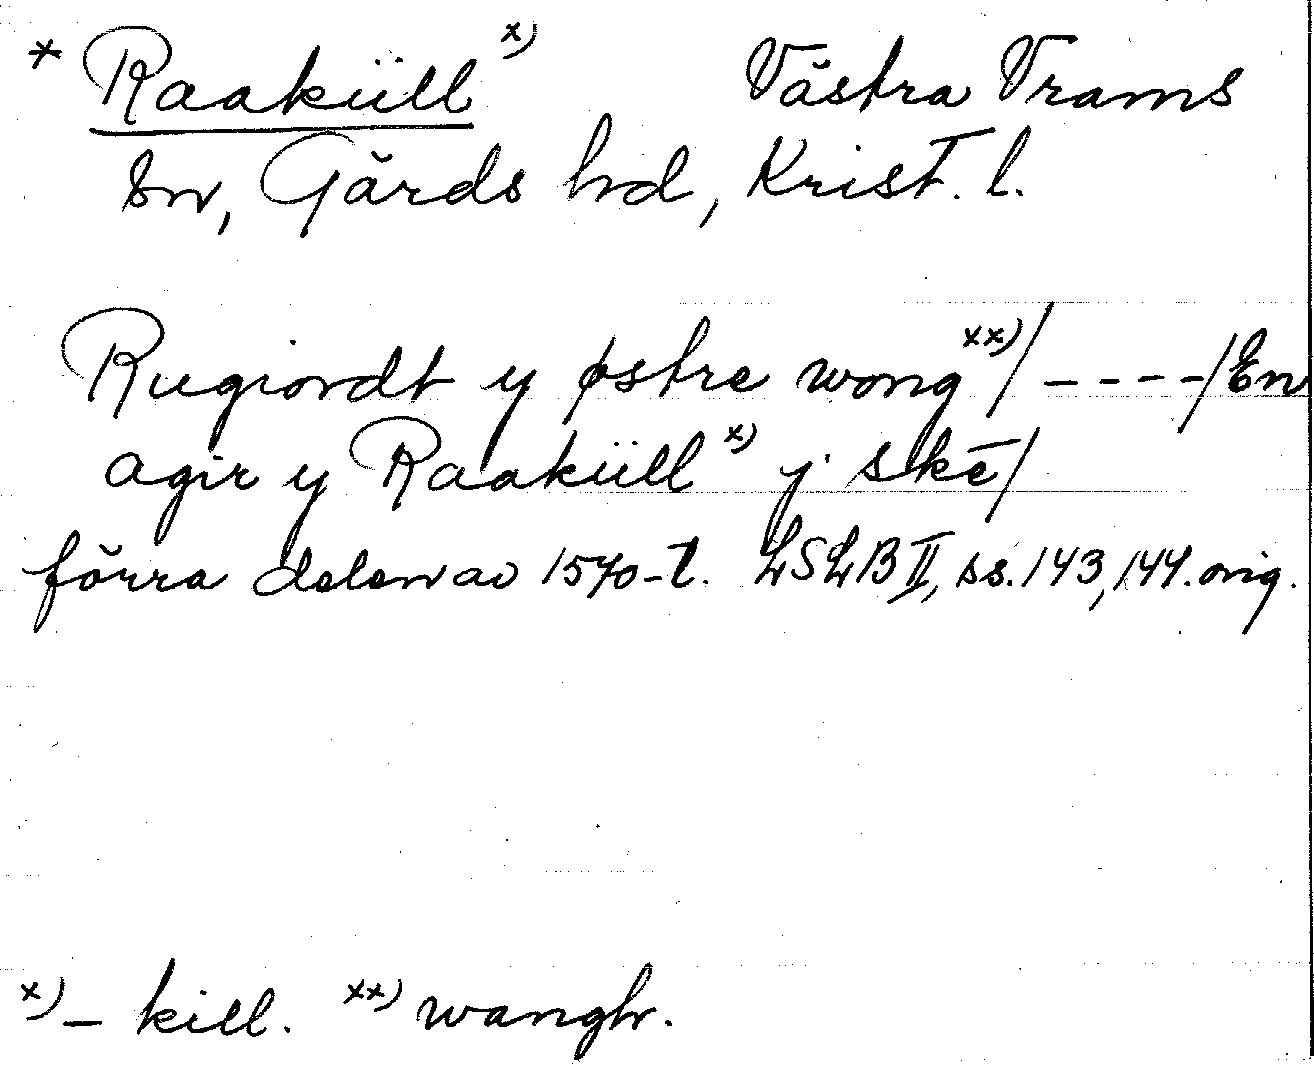 * Raaküll x) Västra Vrams
sn, Gärds hd, Krist. l.
Rugiordt y østre wong xx)/ ----/En
agir y Raaküll x) j skē/
förra delen av 1570-t. LSLB II, ss. 143, 144. orig.
x) – kill. xx) wangh.